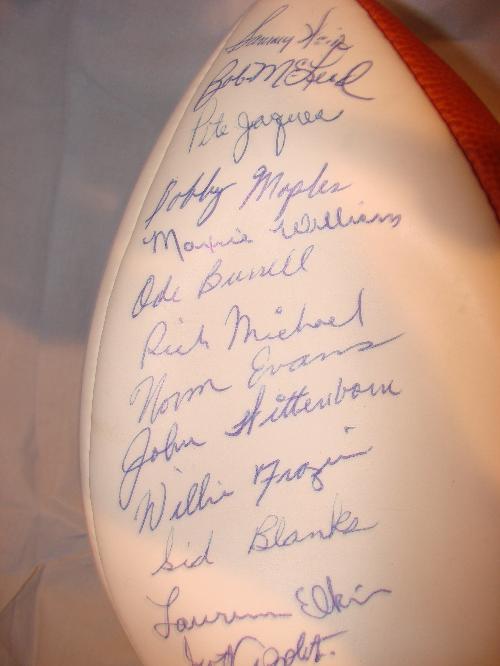 Sammy Weir
Bob McLeod
Pete Jaquess
Bobby Maples
Maxie Williams
Ode Burrell
Rich Michael
Norm Evans
John Wittenborn
Willie Frazier
Sid Blanks